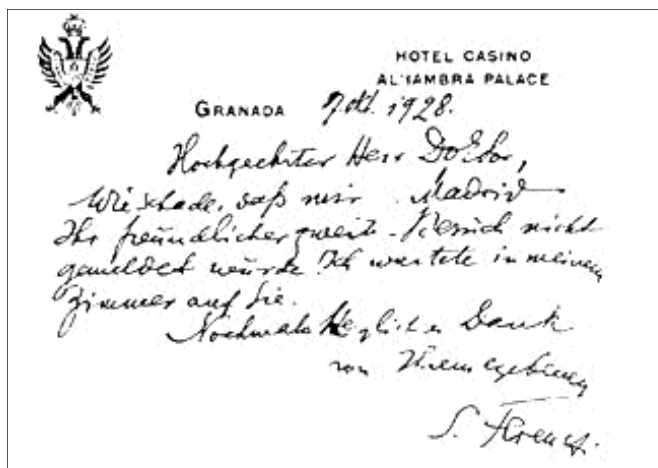 HOTEL CASINO
ALHAMBRA PALACE
GRANADA 7. Okt. 1928.
Hochgeehrter Herr Doktor,
Wie schade, daß mir Madrid
Ihr freundlicher zweite Besuch nicht
gemeldet wurde. Ich wartete in meinem
Zimmer auf Sie.
Nochmals Herzlichen Dank
von Ihrem ergebenen
S. Ferenczi.